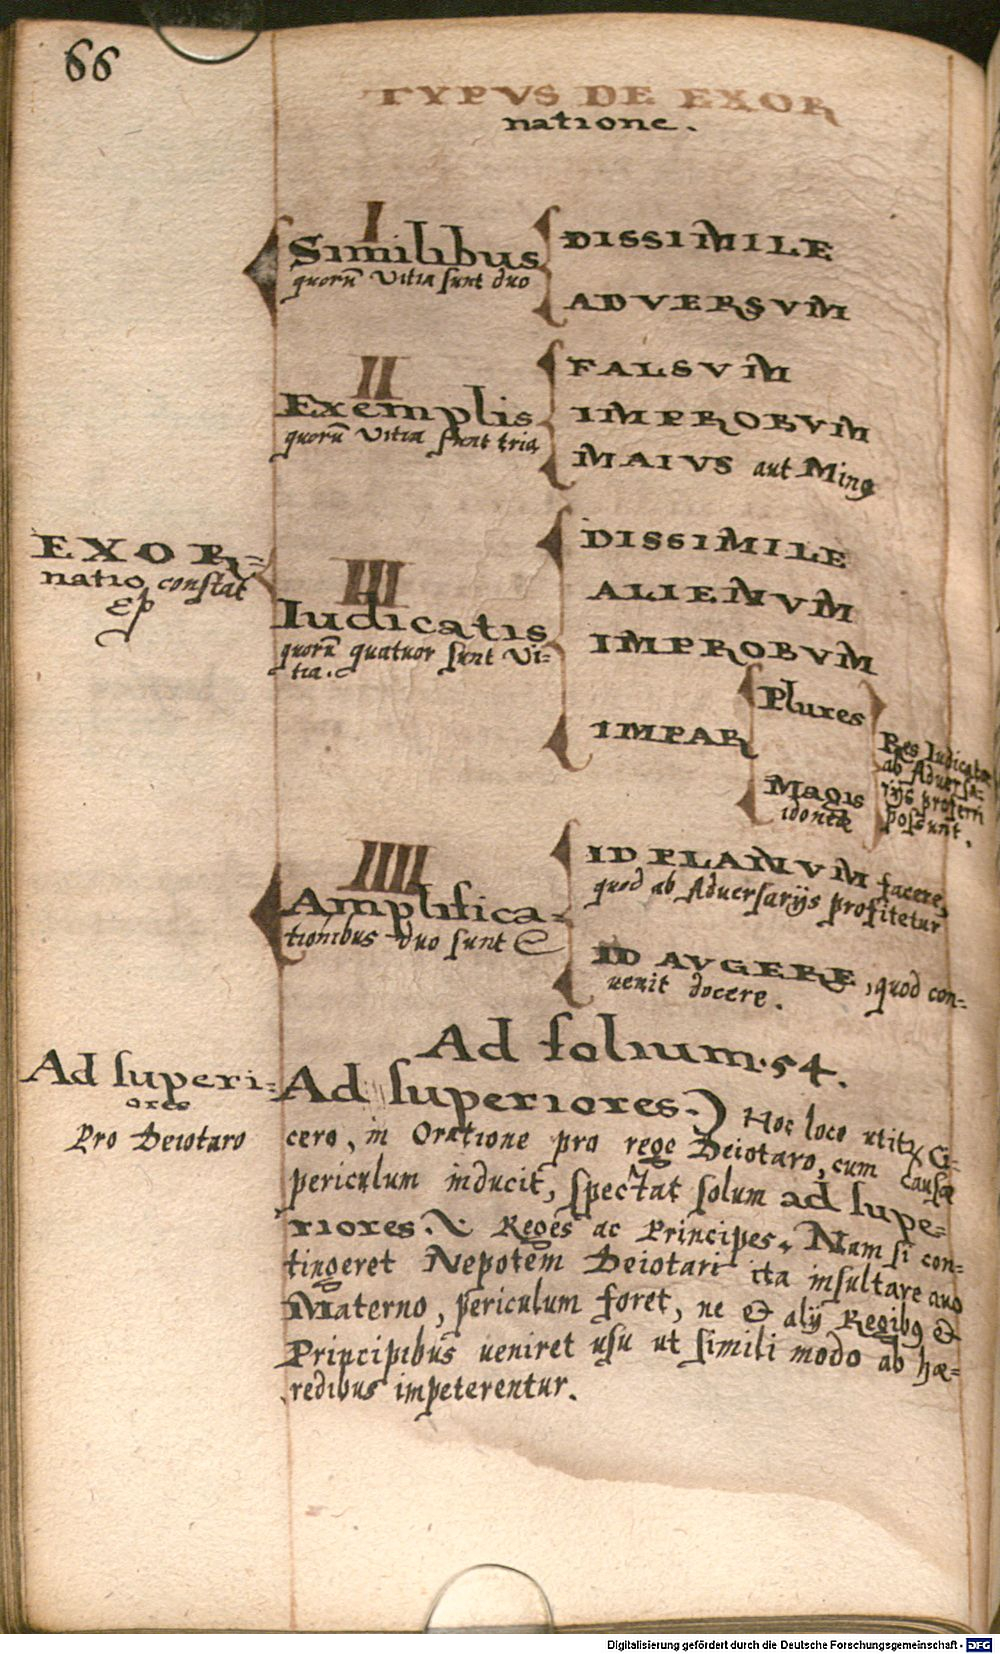 66
TYPVS DE EXOR
natione.
I
Similibus
quorū vitia sunt duo
DISSIMILE
ADVERSVM
II
Exemplis
quorū vitia sunt tria
FALSVM
IMPROBVM
MAIVS aut Minꝰ
EXOR=
natio constat
Ep
III
Iudicatis
quorū quatuor sunt vi=
tia.
DISSIMILE
ALIENVM
IMPROBVM
IMPAR
Plures
Magis
idoneæ
Res Iudicatæ
ab Aduersa=
rijs proferri
possunt.
IIII
Amplifica=
tionibus duo sunt
ID PLANVM facere,
quod ab Aduersarijs profitetur
ID AVGERE, quod con=
uenit docere.
Ad folium. 54.
Ad superi=
ores
Pro Deiotaro
Ad superiores.) Hoc loco utitr Ci=
cero, in Oratione pro rege Deiotaro, cum causæ
periculum inducit, spectat solum ad supe=
riores. v. Reges ac Principes. Nam si con=
tingeret Nepotem Deiotari ita insultare auo
Materno, periculum foret, ne & alij Regibꝰ &
Principibus ueniret usu ut simili modo ab hæ=
redibus impeterentur.
Digitalisierung gefördert durch die Deutsche Forschungsgemeinschaft - DFG